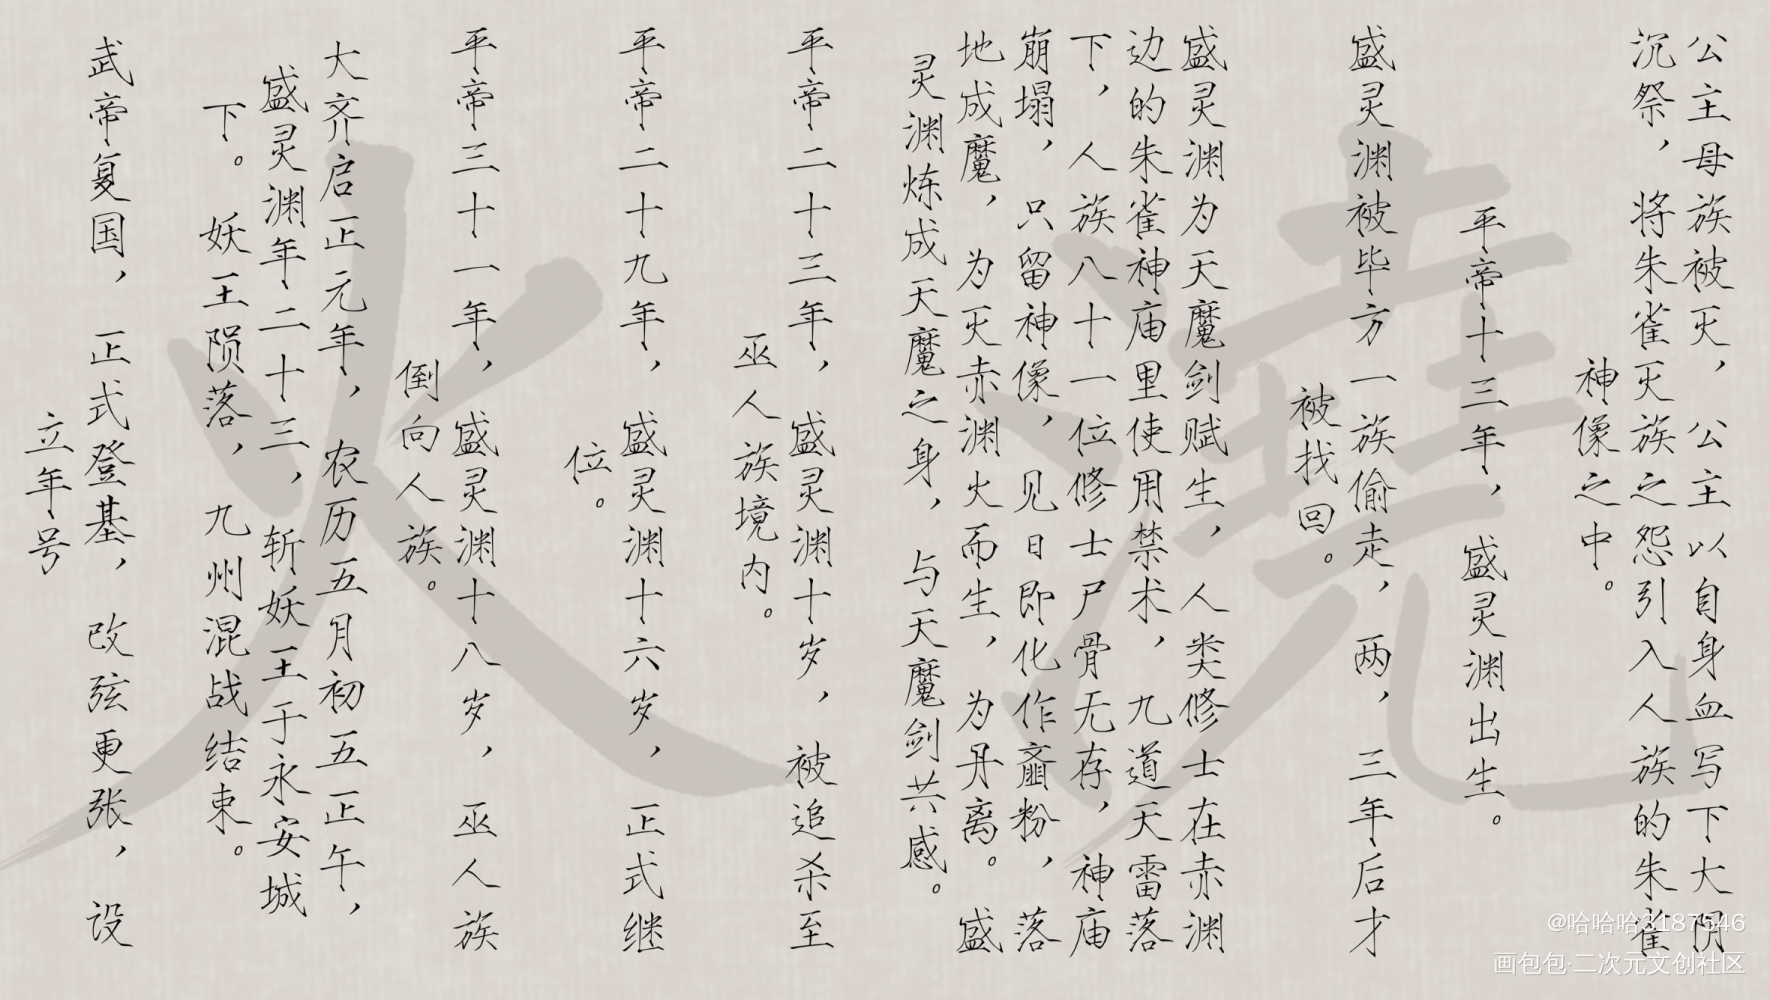 公主母族被灭，公主以自身血写下大阴
沉祭，将朱雀灭族之怨引入人族的朱雀
神像之中。
平帝十三年，盛灵渊出生。
盛灵渊被毕方一族偷走，两，三年后才
被找回。
盛灵渊为天魔剑赋生，人类修士在赤渊
边的朱雀神庙里使用禁术，九道天雷落
下，人族八十一位修士尸骨无存，神庙
崩塌，只留神像，见日即化作齑粉，落
地成魔，为灭赤渊火而生，为丹离。盛
灵渊炼成天魔之身，与天魔剑共感。
平帝二十三年，盛灵渊十岁，被追杀至
巫人族境内。
平帝二十九年，盛灵渊十六岁，正式继
位。
平帝三十一年，盛灵渊十八岁，巫人族
倒向人族。
大齐启正元年，农历五月初五正午，
盛灵渊年二十三，斩妖王于永安城
下。妖王陨落，九州混战结束。
武帝复国，正式登基，改弦更张，设
立年号
燒
火
@哈哈哈3187546
画包包·二次元文创社区